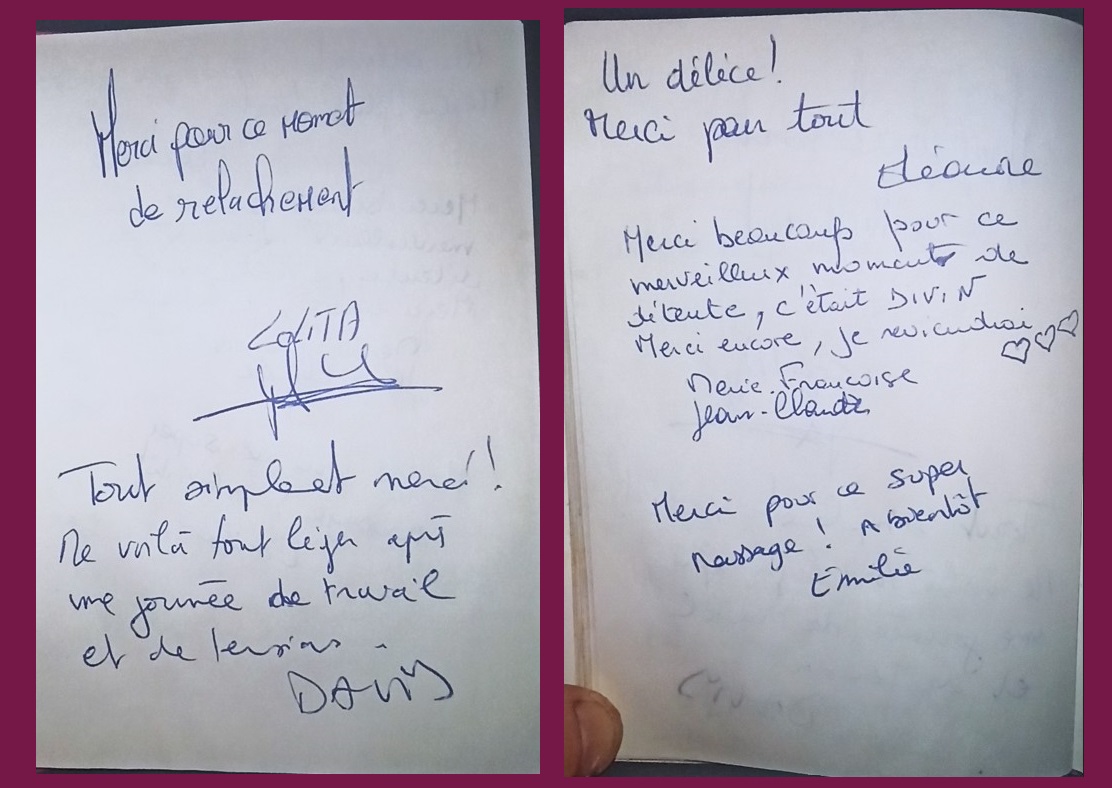 Merci pour ce moment
de relachement
LOLITA
Tout simplement merci !
Me voilà tout léger après
une journée de travail
et de tensions.
DAVID
Un délice !
Merci pour tout
Léonore
Merci beaucoup pour ce
merveilleux moment de
détente, c'était DIVIN
Merci encore, je reviendrai
Marie-Françoise
Jean-Claude
Merci pour ce super
massage ! A bientôt
Emilie